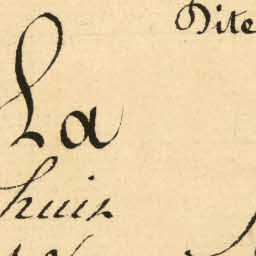 Dite
La
huis